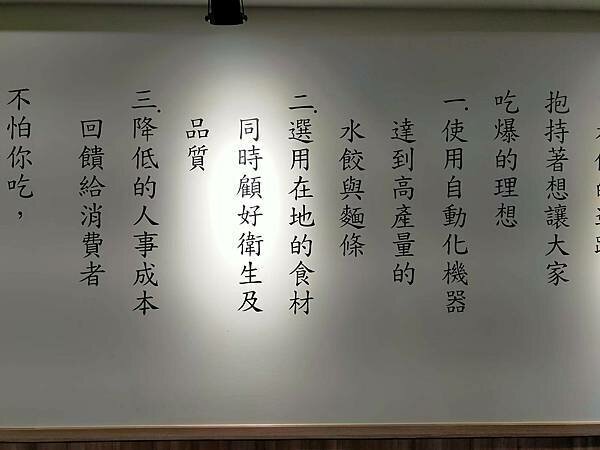 抱持著想讓大家
吃爆的理想
一.使用自動化機器
達到高產量的
水餃與麵條
二.選用在地的食材
同時顧好衛生及
品質
三.降低的人事成本
回饋給消費者
不怕你吃，